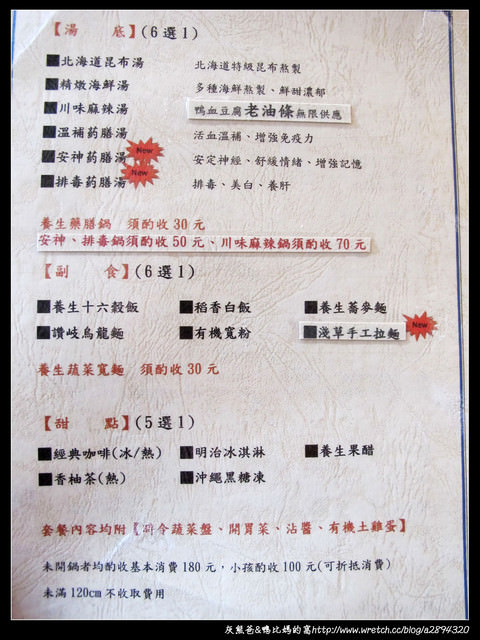 【湯 底】(6選1)
北海道昆布湯 北海道特級昆布熬製
精燉海鮮湯 多種海鮮熬製、鮮甜濃郁
川味麻辣湯 鴨血豆腐老油條無限供應
溫補葯膳湯 活血溫補、增強免疫力
安神葯膳湯 New 安定神經、舒緩情緒、增強記憶
排毒葯膳湯 New 排毒、美白、養肝
養生藥膳鍋 須酌收30元
安神、排毒鍋須酌收50元、川味麻辣鍋須酌收70元
【副 食】(6選1)
養生十六穀飯 稻香白飯 養生蕎麥麵
讚岐烏龍麵 有機寬粉 淺草手工拉麵 New
養生蔬菜寬麵 須酌收30元
【甜 點】(5選1)
經典咖啡(冰/熱) 明治冰淇淋 養生果醋
香柚茶(熱) 沖繩黑糖凍
套餐內容均附【時令蔬菜盤、開胃菜、沾醬、有機土雞蛋】
未開鍋者均酌收基本消費180元,小孩酌收100元(可折抵消費)
未滿120cm不收取費用
灰熊爸&鴨比媽的窩http://www.wretch.cc/blog/a2894320